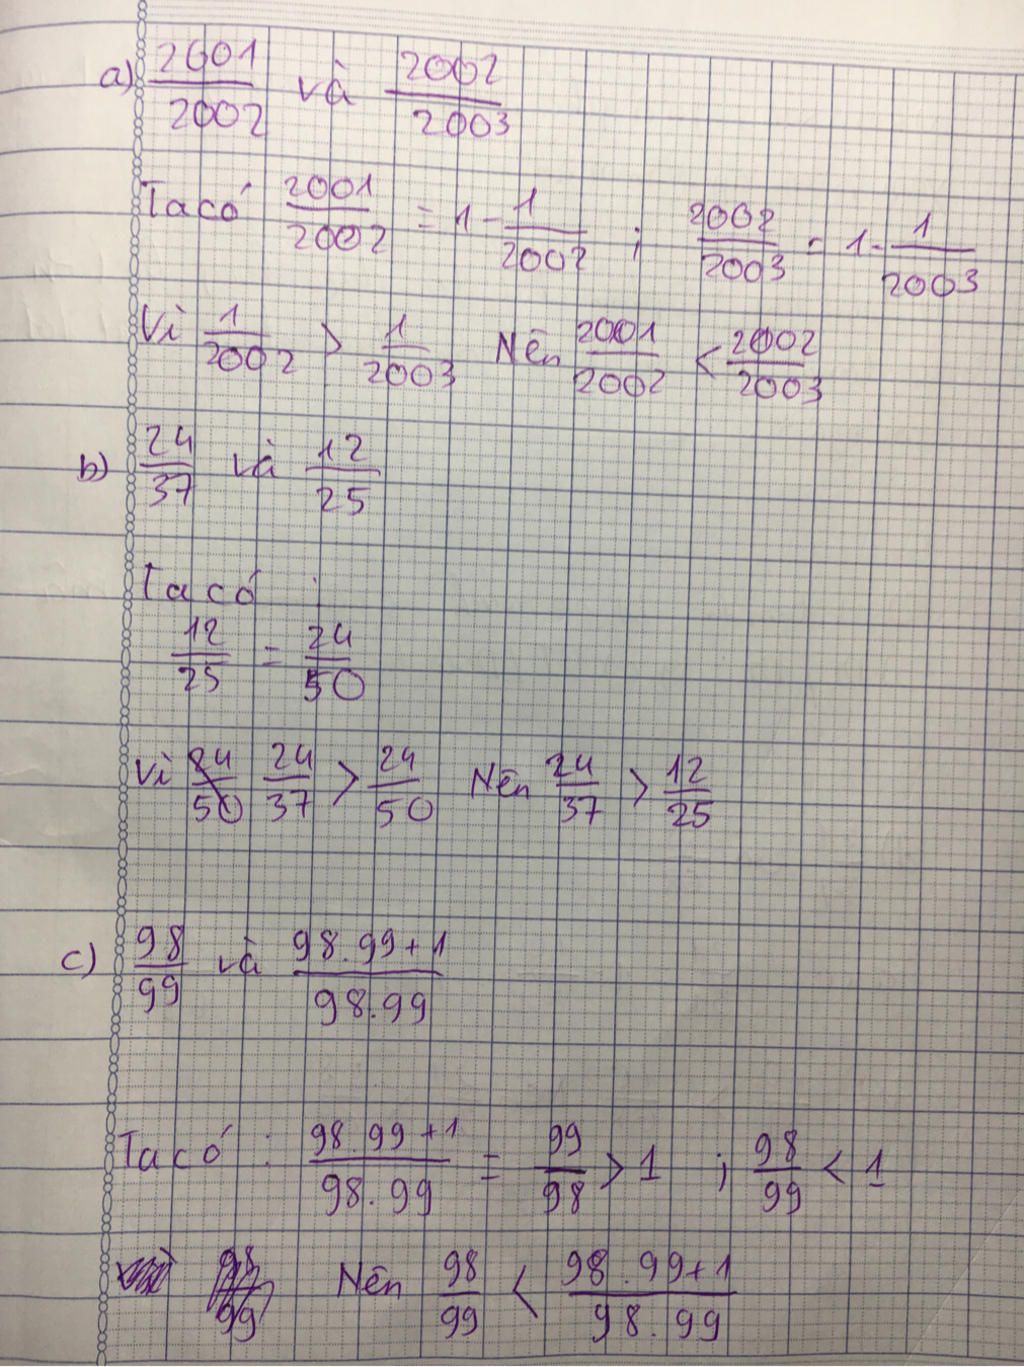 a) 2001/2002 và 2002/2003
Ta có 2001/2002 = 1 - 1/2002 ; 2002/2003 = 1 - 1/2003
Vì 1/2002 > 1/2003 Nên 2001/2002 < 2002/2003
b) 24/37 và 12/25
Ta có :
12/25 = 24/50
Vì 24/50 24/37 > 24/50 Nên 24/37 > 12/25
c) 98/99 và 98.99+1/98.99
Ta có : 98.99+1/98.99 = 99/98 > 1 ; 98/99 < 1
98/99 Nên 98/99 < 98.99+1/98.99